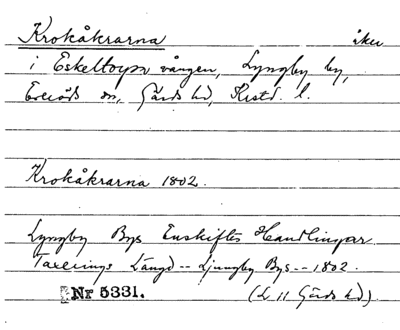 Krokåkrarna åker
i Eskeltorpa vången, Lyngby by,
Everöds sn, Gärds hd, Krstd. l.
Krokåkrarna 1802.
Lyngby Bys Enskiftes Handlingar
Taxerings Längd -- Ljungby Bys -- 1802.
Nr 5331. (L 11 Gärds hd).